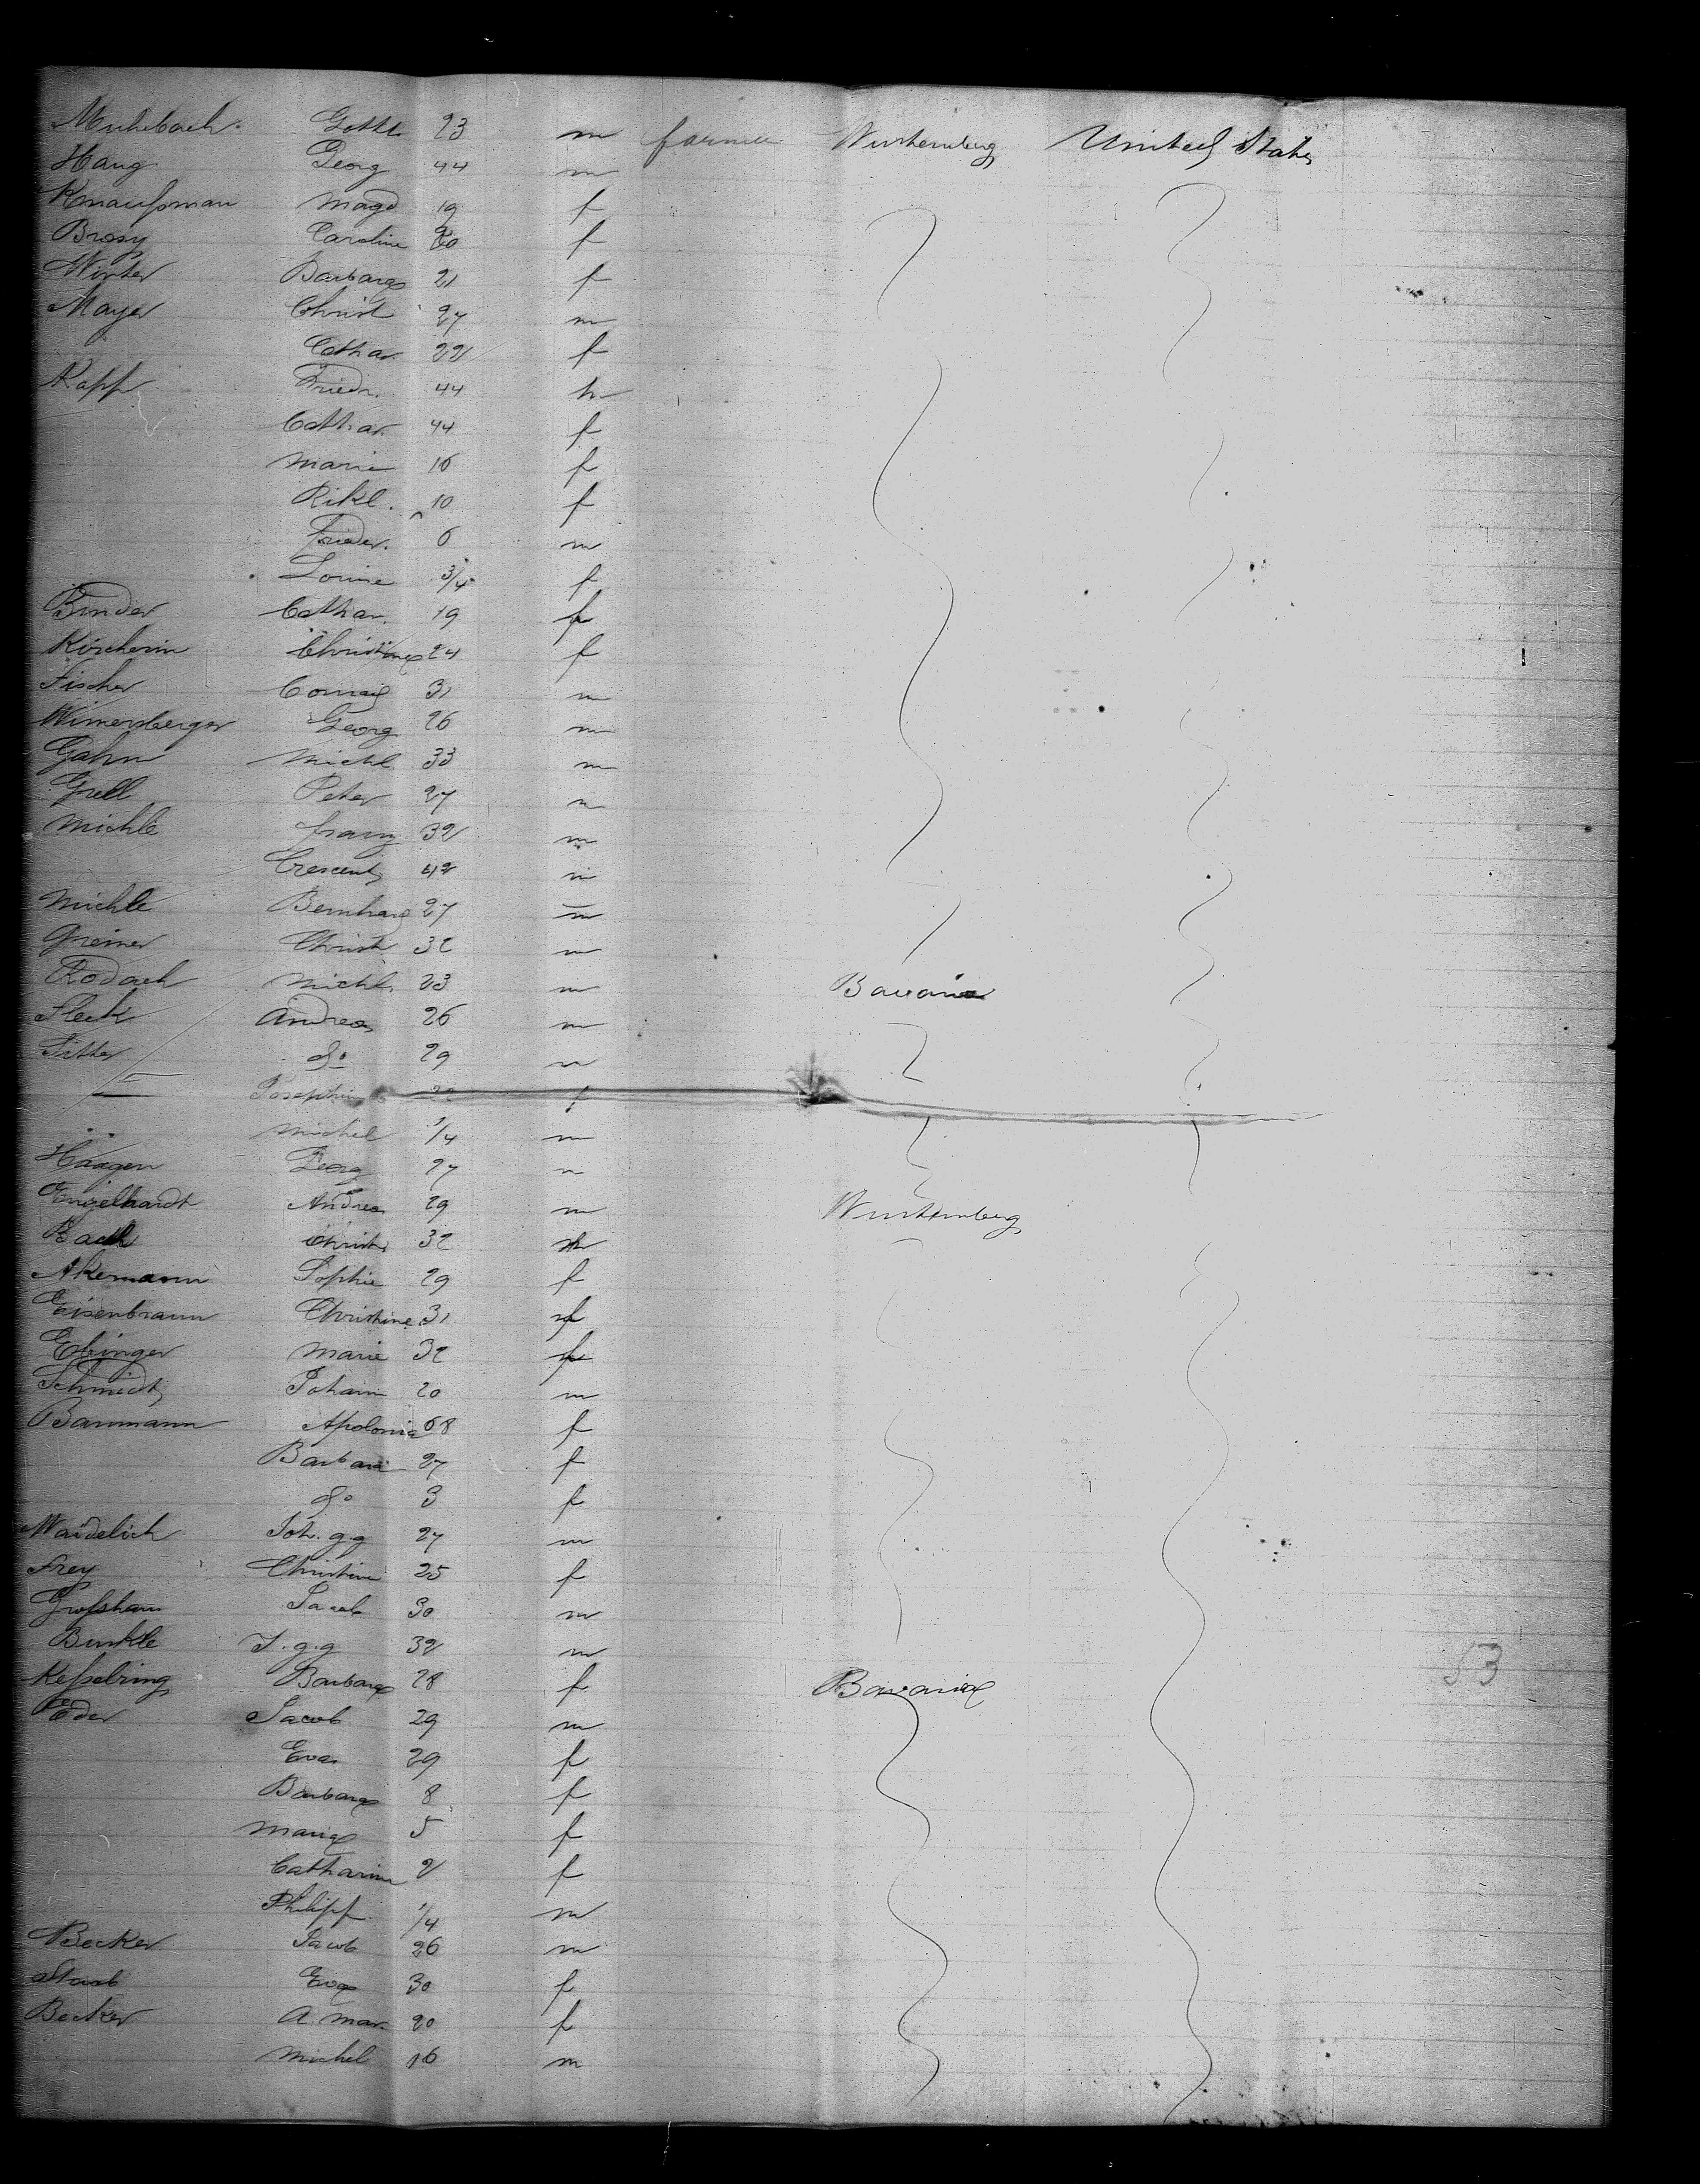 Muhlbach Gottl. 23 m farmer Wurtemberg United States
Haug Georg 44 m
Knaußman Magd 19 f
Brosy Caroline 20 f
Winter Barbara 21 f
Mayer Christ 27 m
Cathar. 22 f
Kapp Friedr. 44 m
Cathar. 44 f
Marie 16 f
Rikl. 10 f
Frieder. 6 m
Louise 3/4 f
Binder Cathar. 19 f
Kircherin Christine 24 f
Fischer Conrad 31 m
Wimersberger Georg 26 m
Gahn Michl. 33 m
Grell Peter 27 m
Michle franz 32 m
Crescent 42 m
Michle Bernhard 27 m
Greiner Christ. 32 m
Rodach Michl. 23 m Bavaria
Fleck Andreas 26 m
Sitter do 29 m
Josephin f
Michel 1/4 m
Haagen Georg 27 m
Engelhardt Andreas 29 m Wurtemberg
Bach Christ. 32 m
Akermann Sophie 29 f
Eisenbraun Christine 31 f
Ebinger Marie 32 f
Schmidt Johann 20 m
Baumann Apolonia 68 f
Barbara 27 f
do 3 f
Waidelich Joh. g.g 27 m
Frey Christine 25 f
Großhans Jacob 30 m
Burkle J. g.g 32 m
Keßelring Barbara 28 f Bavaria 53
Eder Jacob 29 m
Eva 29 f
Barbara 8 f
Maria 5 f
Catharine 2 f
Philipp 1/4 m
Becker Jacob 26 m
Staub Eva 30 f
Becker A. Mar. 20 f
Michel 16 m